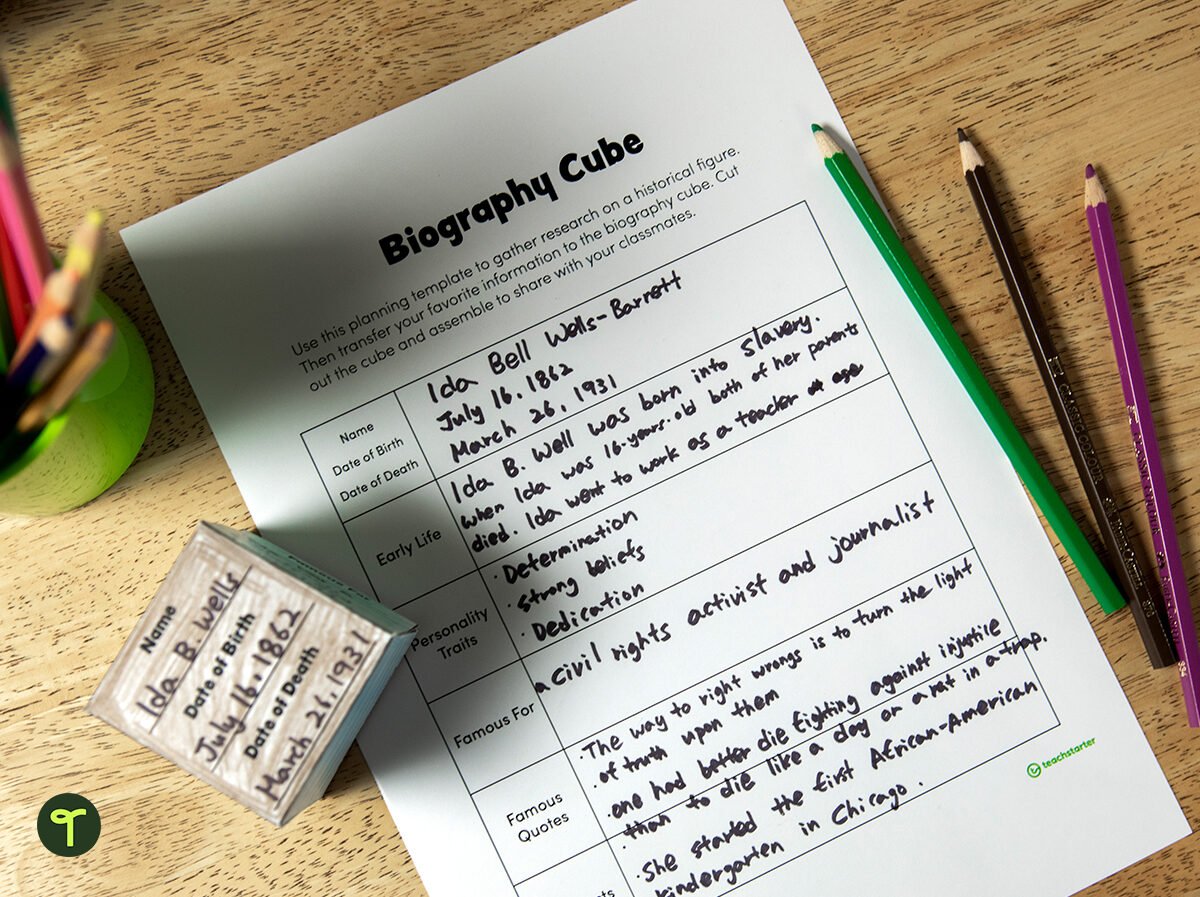 Biography Cube
Use this planning template to gather research on a historical figure.
Then transfer your favorite information to the biography cube. Cut
out the cube and assemble to share with your classmates.
Name
Date of Birth
Date of Death
Ida Bell Wells-Barrett
July 16, 1862
March 26, 1931
Early Life
Ida B. Well was born into slavery.
When Ida was 16-years-old both of her parents
died. Ida went to work as a teacher at age
Personality
Traits
· Determination
· Strong beliefs
· Dedication
Famous For
a civil rights activist and journalist
Famous
Quotes
· The way to right wrongs is to turn the light
of truth upon them
· one had better die fighting against injustice
than to die like a dog or a rat in a trap.
· She started the first African-American
kindergarten in Chicago.
teachstarter
Name
Ida B. Wells
Date of Birth
July 16, 1862
Date of Death
March 26, 1931